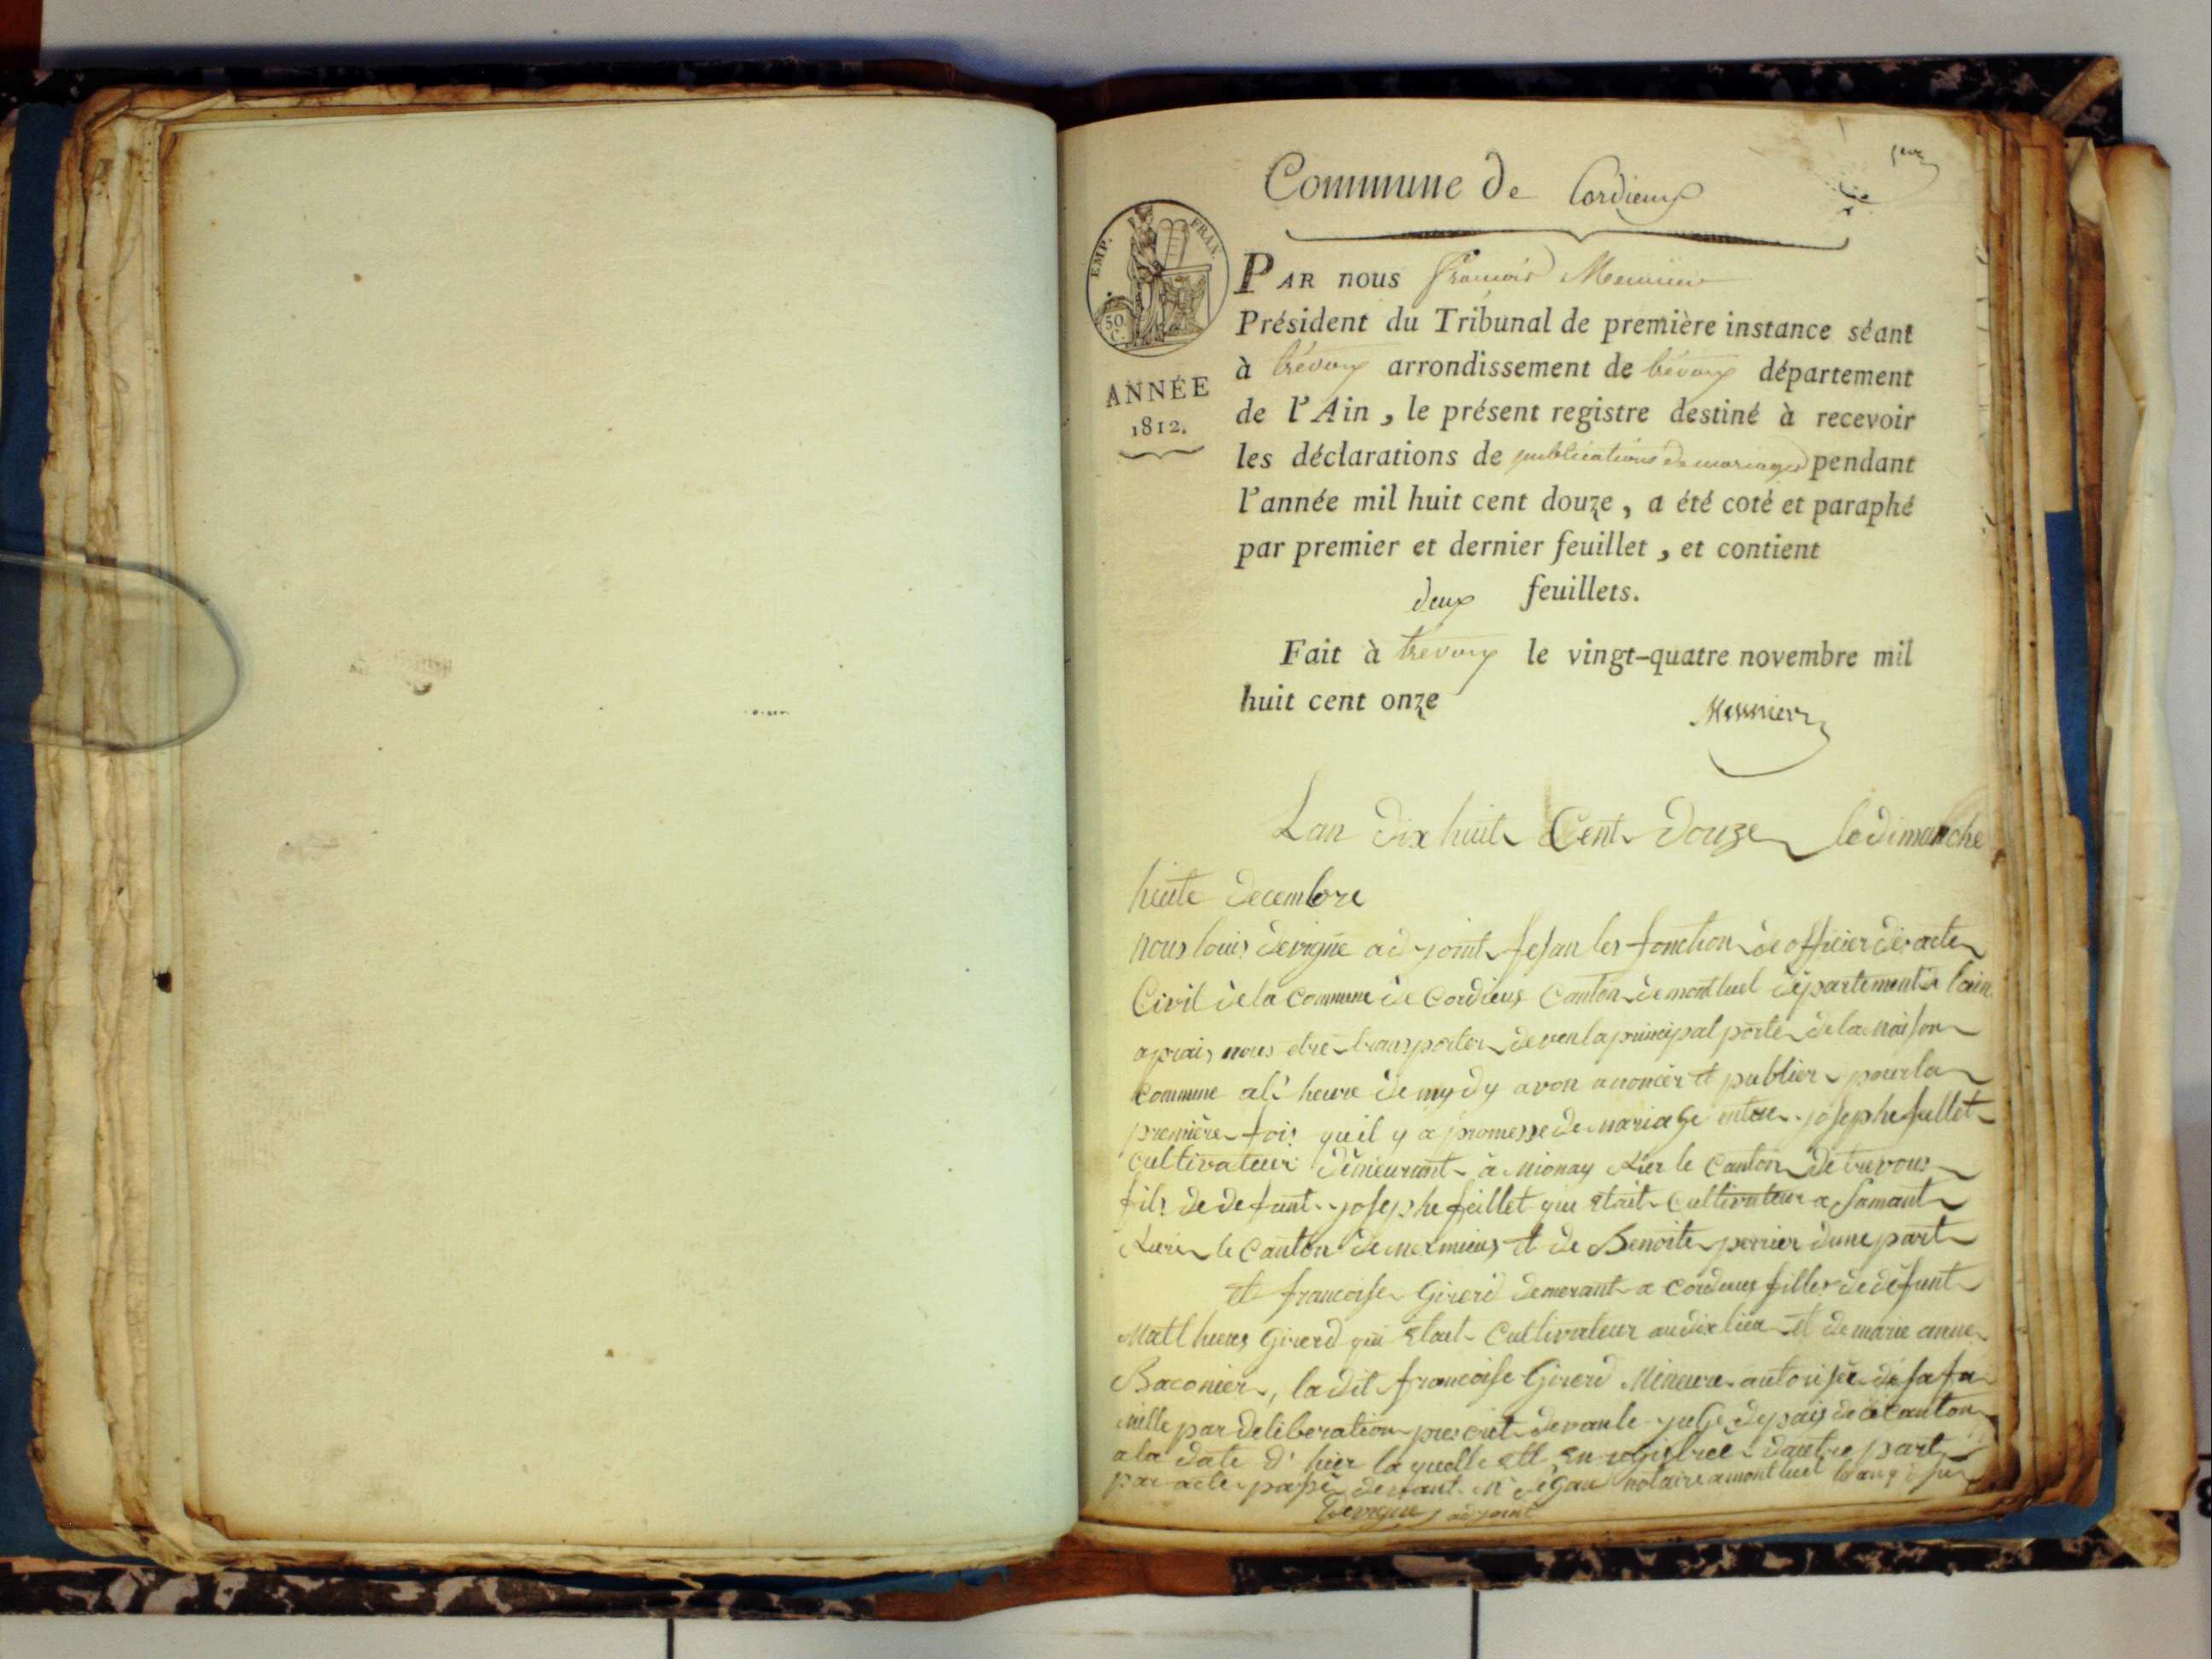 Commune de Cordieux
EMP. FRAN.
50
C.
ANNÉE
1812.
PAR nous François Meunier
Président du Tribunal de première instance séant
à trévoux arrondissement de trévoux département
de l'Ain, le présent registre destiné à recevoir
les déclarations de publications de mariages pendant
l'année mil huit cent douze, a été coté et paraphé
par premier et dernier feuillet, et contient
deux feuillets.
Fait à trevoux le vingt-quatre novembre mil
huit cent onze
Meunier
Lan dix huit Cent douze le dimanche
huite decembre
nous louis devigne adjoint fesan les fonction de officier de acte
Civil de la commune de Cordieux Canton de montluel département de lain
aprais nous etre transporter deven la principal porte de la maison
commune a l'heure de mydy avon anoncer et publier pour la
premiere fois qu'il y a promesse de mariage entre josephe feillet
cultivateur demeurant a mionay Rier le Canton de trevous
fils de defunt josephe feillet qui etait Cultivateur a
le Canton de meximieus et de Benoite perrier dune part
et francoise Girerd demerant a cordieus filles de defunt
Mathieus Girerd qui etait Cultivateur audix lieu et de marie anne
Baconier, la dit francoise Girerd Mineure autorisée de sa fa
mille par deliberation devan le juge de pais de ce Canton
a la date d'hier la quelle ett enregistree dautre part
par acte passé devant notaire a montluel
Devigne adjoint